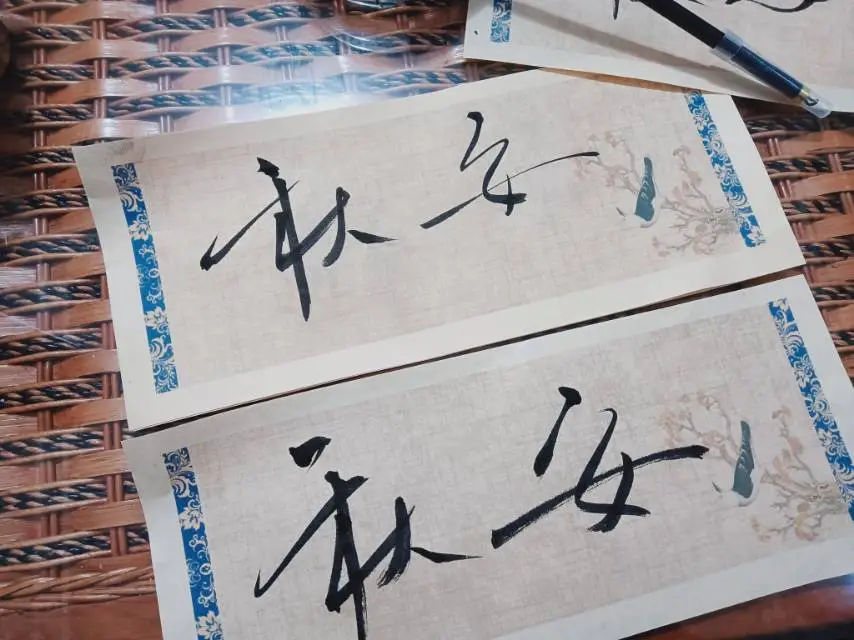 秋安
秋安